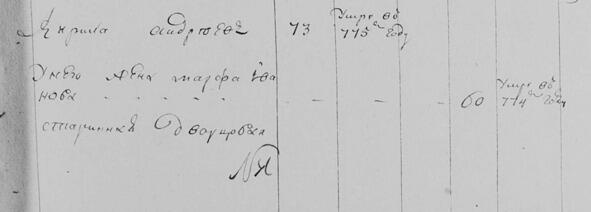 Кирила Андреевъ 73 Умре въ 775м году
У него жена Марфа Ива
нова - - - - - 60 Умре въ 774м году
старинная Дворцовая